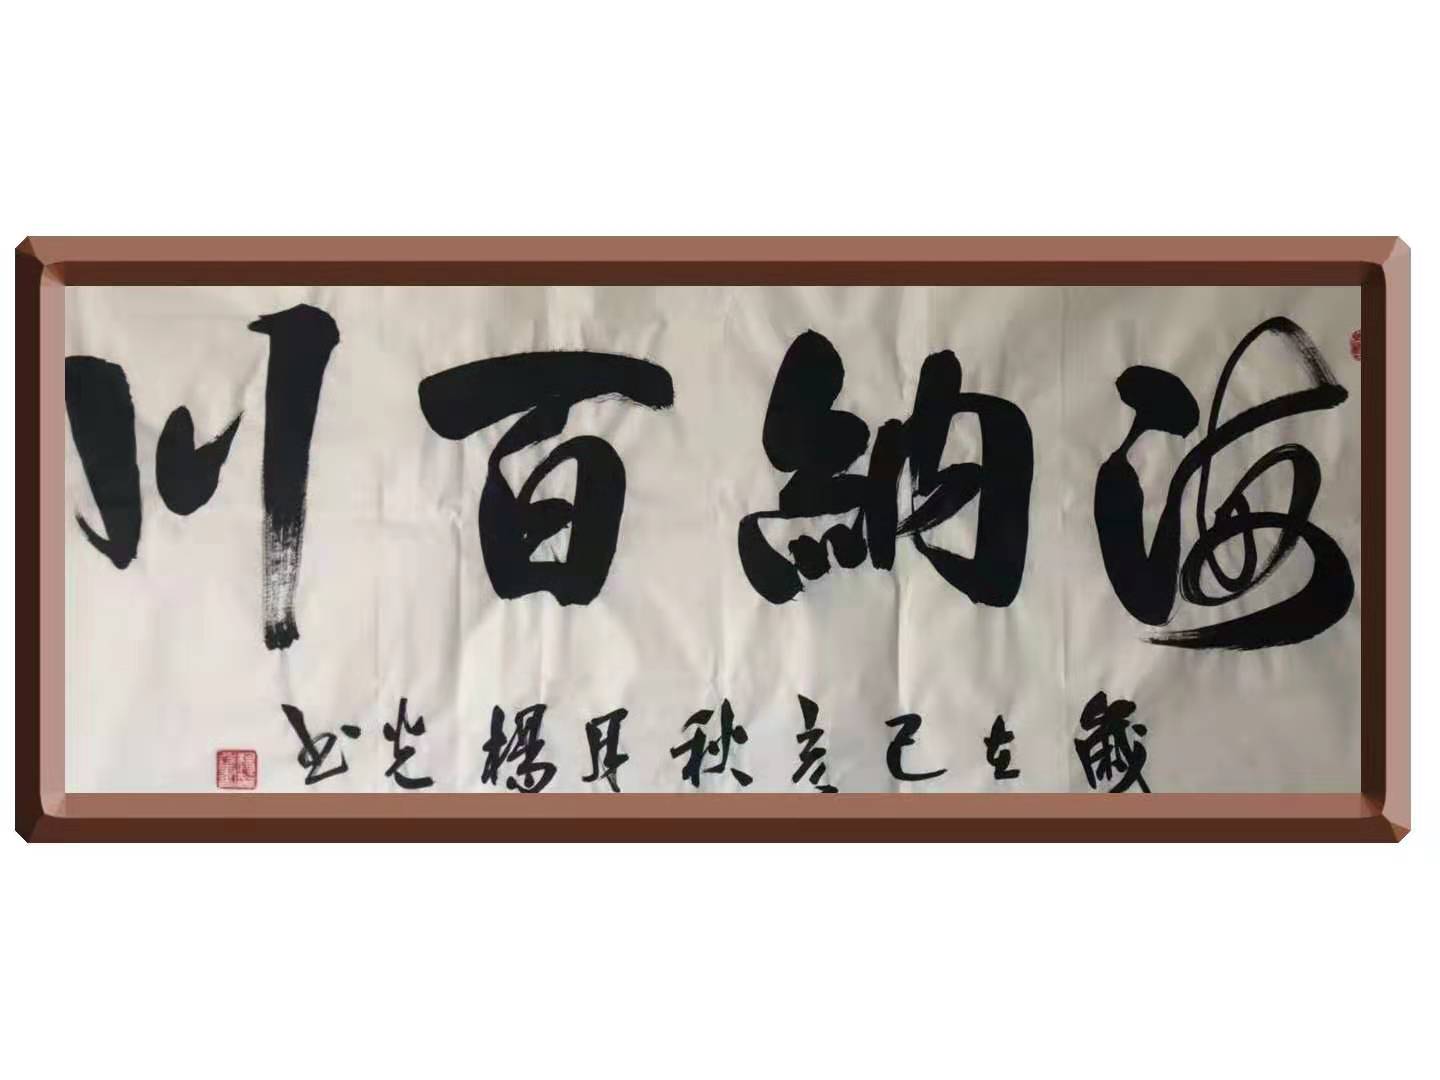 海納百川
歲在己亥秋月楊光书